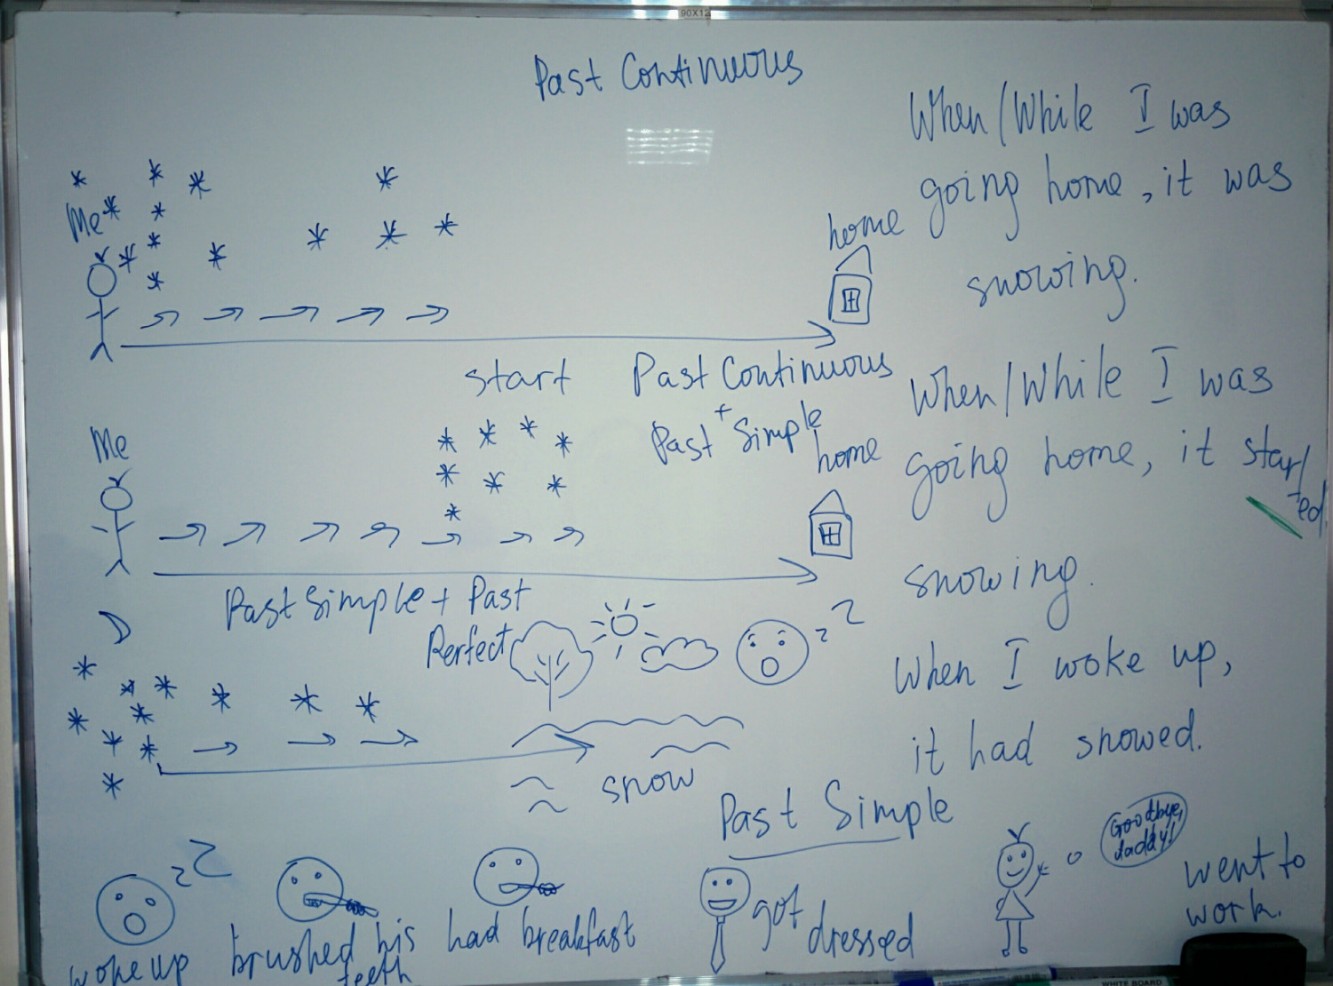 90X12
Past Continuous
When/While I was
going home, it was
snowing.
Me
home
start
Past Continuous
+
Past Simple
When/While I was
going home, it start
ed
snowing.
Me
home
Past Simple + Past
Perfect
z z
When I woke up,
it had snowed.
snow
Past Simple
z z
woke up
brushed his
teeth
had breakfast
got
dressed
Goodbye,
daddy!
went to
work.
WHITE BOARD